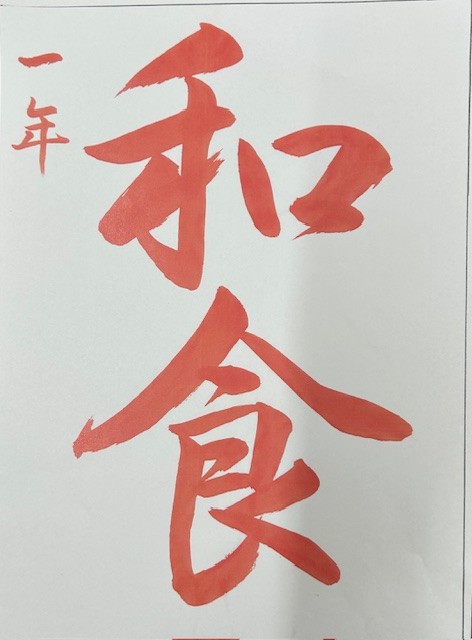 和食
一年